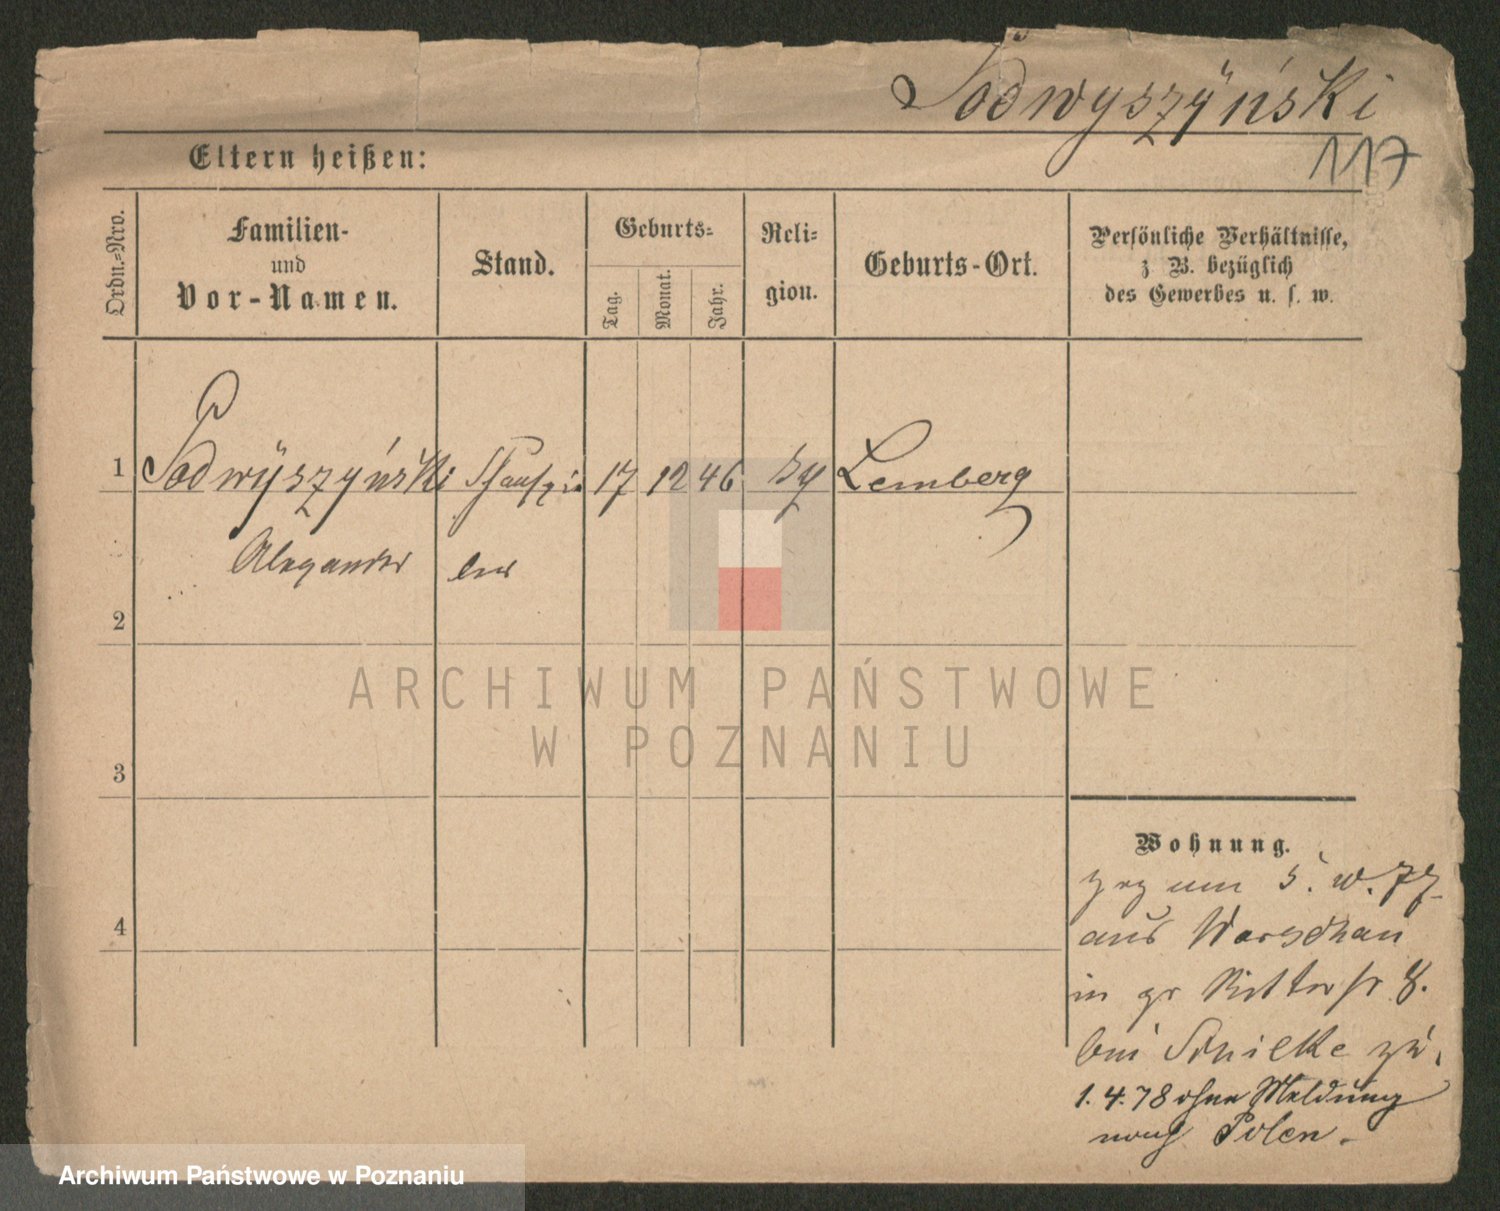 Podwyszyński
117
Eltern heißen:
Ordn.-Nro.
Familien-
und
Vor-Namen.
Stand.
Geburts-
Tag.
Monat.
Jahr.
Reli-
gion.
Geburts-Ort.
Persönliche Verhältnisse,
z B. bezüglich
des Gewerbes u. s. w.
P
1 Podwyszyński Schauspie 17 12 46 Lemberg
Alexander ler
2
3
4
Wohnung.
zrg am 5. 77
aus Warschau
in gr Ritterstr 8.
bei zu.
1. 4. 78 ohne Meldung
nach Polen.
ARCHIWUM PAŃSTWOWE
W POZNANIU
Archiwum Państwowe w Poznaniu